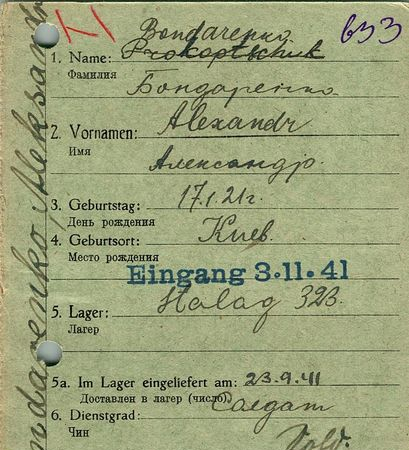 Bondarenko
633
1. Name: Prokoptschuk
Фамилия
Бондаренко
2. Vornamen: Alexandr
Имя
Александр.
3. Geburtstag: 17.1.21г.
День рождения
4. Geburtsort: Киев.
Место рождения
Eingang 3.11.41
5. Lager: Stalag 323.
Лагер
5a. Im Lager eingeliefert am: 23.9.41
Доставлен в лагер (число).
6. Dienstgrad: Солдат
Чин
Sold.
ndarenko, Aleksand